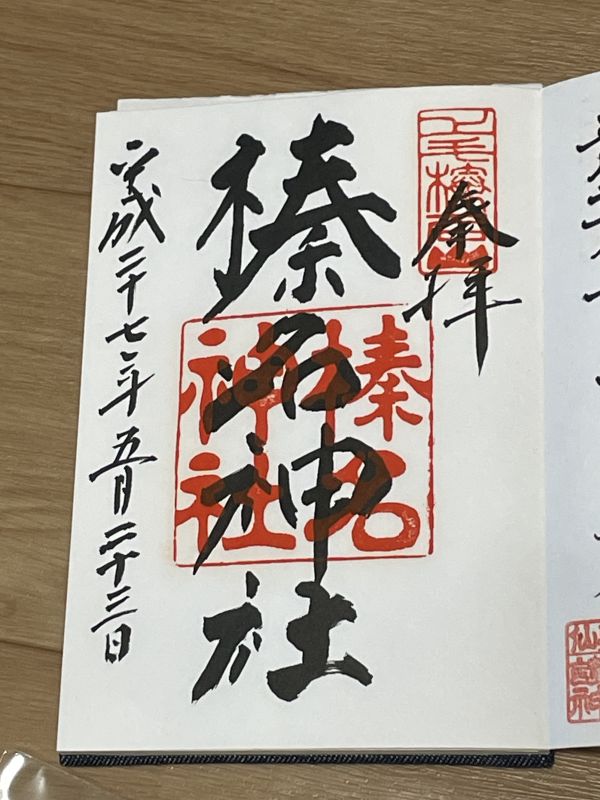 奉拝
上毛榛名山
榛名神社
榛名
神社
平成二十七年五月二十三日